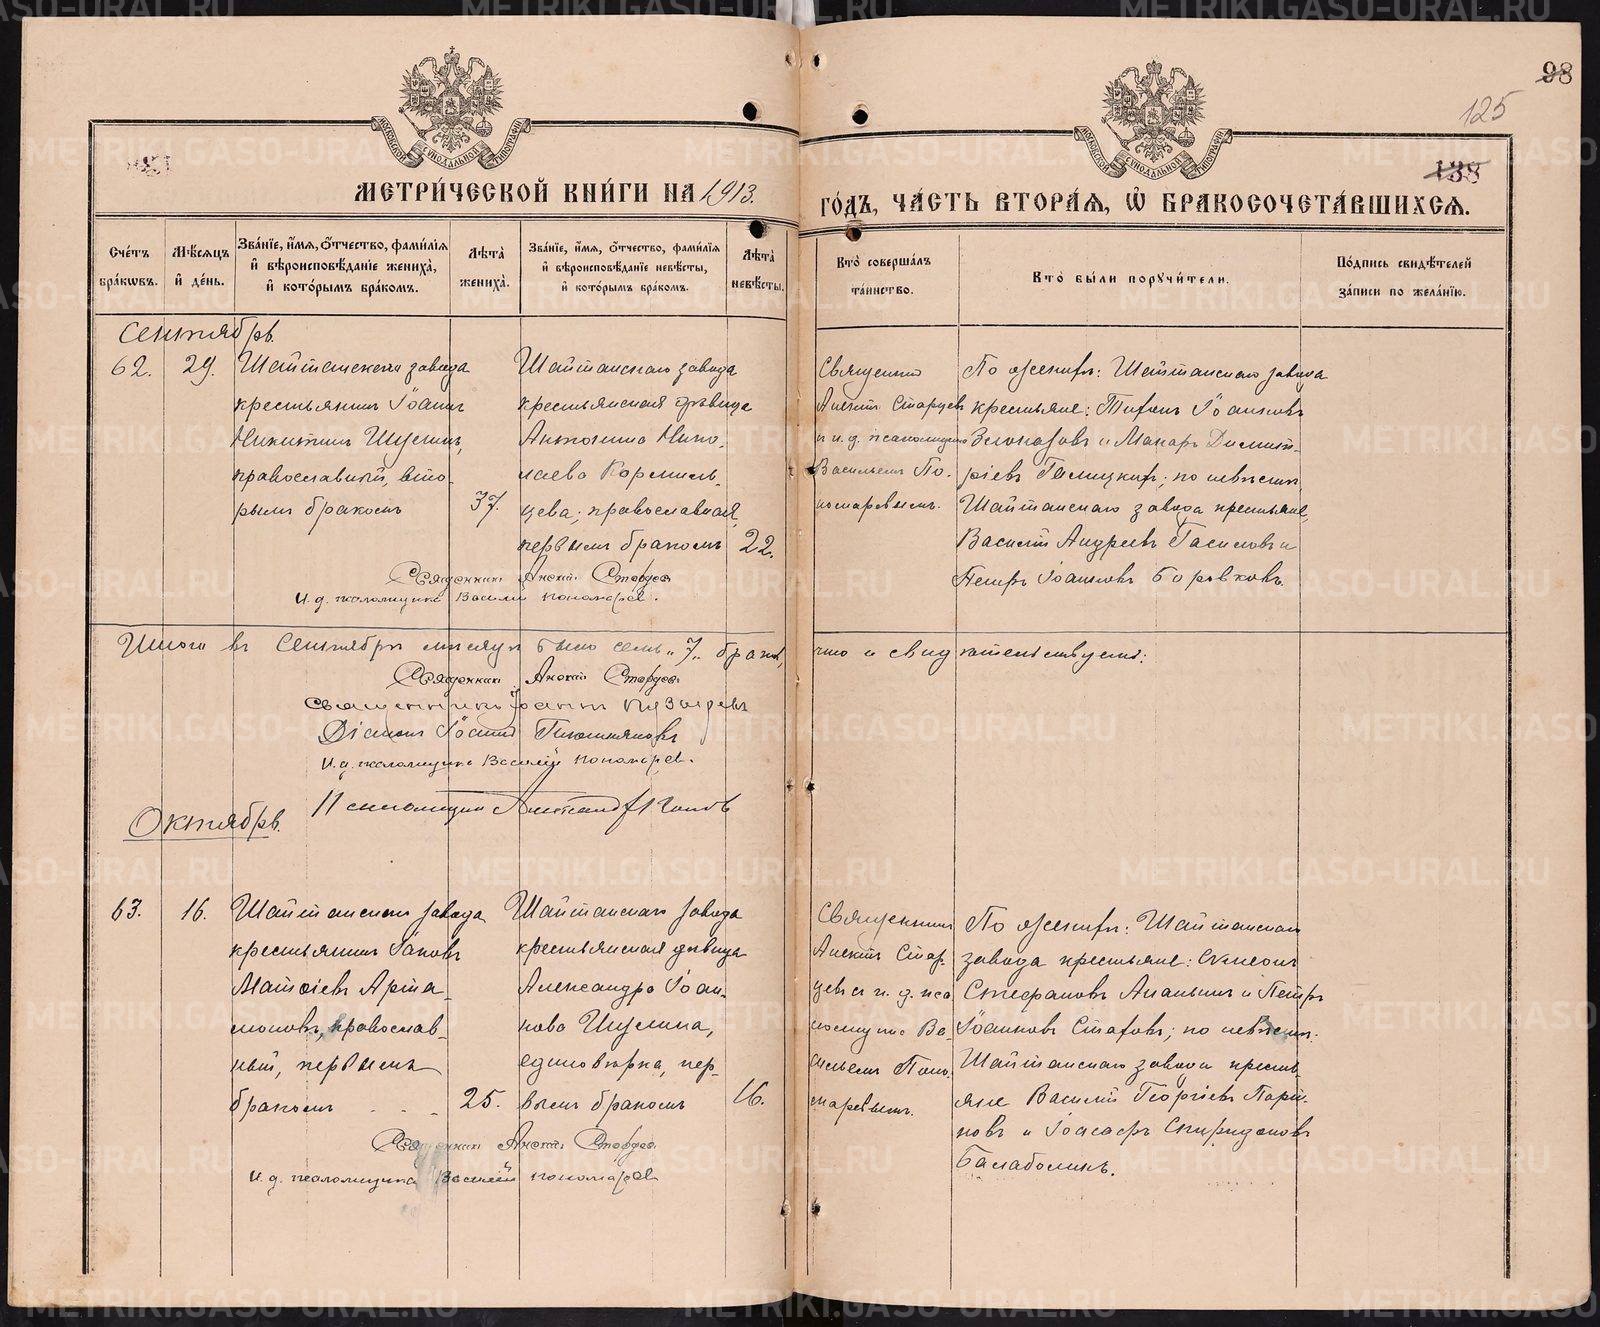 98
125
138
МОСКОВСКОЙ СѴНОДАЛЬНОЙ ТИПОГРАФІИ
МОСКОВСКОЙ СѴНОДАЛЬНОЙ ТИПОГРАФІИ
МЕТРИ́ЧЕСКОЙ КНИ́ГИ НА 1913.
ГО́ДЪ, ЧА́СТЬ ВТОРА́Я, Ѡ БРАКОСОЧЕТА́ВШИХСЯ.
Сче́тъ бра́кѡвъ.
Мѣ́сяцъ и҆ де́нь.
Зва́нїе, и҆́мя, ѻ҆́тчество, фами́лїя и҆ вѣроисповѣ́данїе жениха̀, и҆ кото́рымъ бра́комъ.
Лѣта̀ жениха̀.
Зва́нїе, и҆́мя, ѻ҆́тчество, фами́лїя и҆ вѣроисповѣ́данїе невѣ́сты, и҆ кото́рымъ бра́комъ.
Лѣта̀ невѣ́сты.
Кто̀ соверша́лъ та́инство.
Кто̀ бы́ли порꙋчи́тели.
По́дпись свидѣ́телей за́писи по жела́нїю.
Сентябрь.
62.
29.
Шайтанскаго завода
крестьянинъ Іоаннъ
Никитинъ Шулинъ,
православный, вто-
рымъ бракомъ
37.
Шайтанскаго завода
крестьянская дѣвица
Антонина Нико-
лаева Кормиль-
цева; православная,
первымъ бракомъ
22.
Священникъ
Алексѣй Старцевъ
и и. д. псаломщика
Василіемъ По-
номаревымъ.
По женихѣ: Шайтанскаго завода
крестьяне: Тифонъ Іоанновъ
Злоказовъ и Макаръ Димит-
ріевъ Галицкихъ; по невѣстѣ
Шайтанскаго завода крестьяне,
Василій Андреевъ Гасиловъ и
Петръ Іоанновъ Боровковъ.
Священникъ Алексій Старцевъ
И. д. псаломщика Василій Пономаревъ.
Итого въ Сентябрѣ мѣсяцѣ было семь „7„ браковъ,
что и свидѣтельствуемъ:
Священникъ Алексій Старцевъ
Священникъ Іоаннъ
Діаконъ Іоаннъ
И. д. псаломщика Василій Пономаревъ.
Псаломщикъ Александръ Поповъ
Октябрь.
63.
16.
Шайтанскаго завода
крестьянинъ Іаковъ
Матѳіевъ Арта-
моновъ, православ-
ный, первымъ
бракомъ . . .
25.
Шайтанскаго завода
крестьянская дѣвица
Александра Іоан-
нова Шулина,
единовѣрка, пер-
вымъ бракомъ
16.
Священникъ
Алексѣй Стар-
цевъ съ и. д. пса-
ломщика Ва-
сильемъ Поно-
маревымъ.
По женихѣ: Шайтанскаго
завода крестьяне: Симеонъ
Стефановъ Ананьинъ и Петръ
Іоанновъ Старовъ; по невѣстѣ
Шайтанскаго завода кресть-
яне Василій Георгіевъ Пари-
новъ и Іоасафъ Спиридоновъ
Балаболинъ.
Священникъ Алексій Старцевъ
И. д. псаломщика Василій Пономаревъ
METRIKI.GASO-URAL.RU